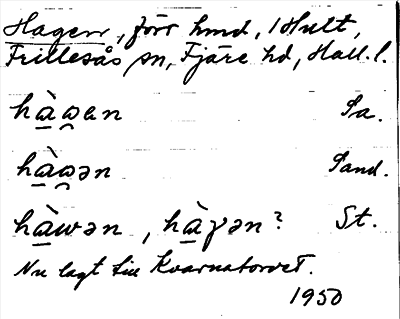 Hagen, förr hmd, 1 Hult,
Frillesås sn, Fjäre hd, Hall. l.
hà̱w̯en Sa.
hà̱w̯ən Sand.
hà̱wən, hà̱γən? St.
Nu lagt till Kvarnatorvet.
1950